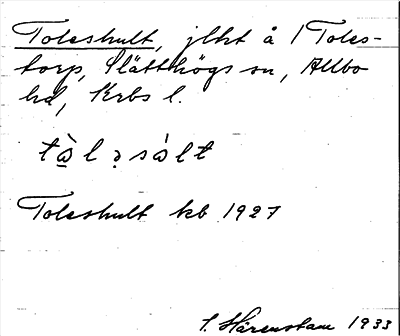 Toleshult, jlht å 1 Toles-
torp, Slätthögs sn, Allbo
hd, Krbs l.
tàl əsàlt
Toleshult kb 1927
Härenstam 1933